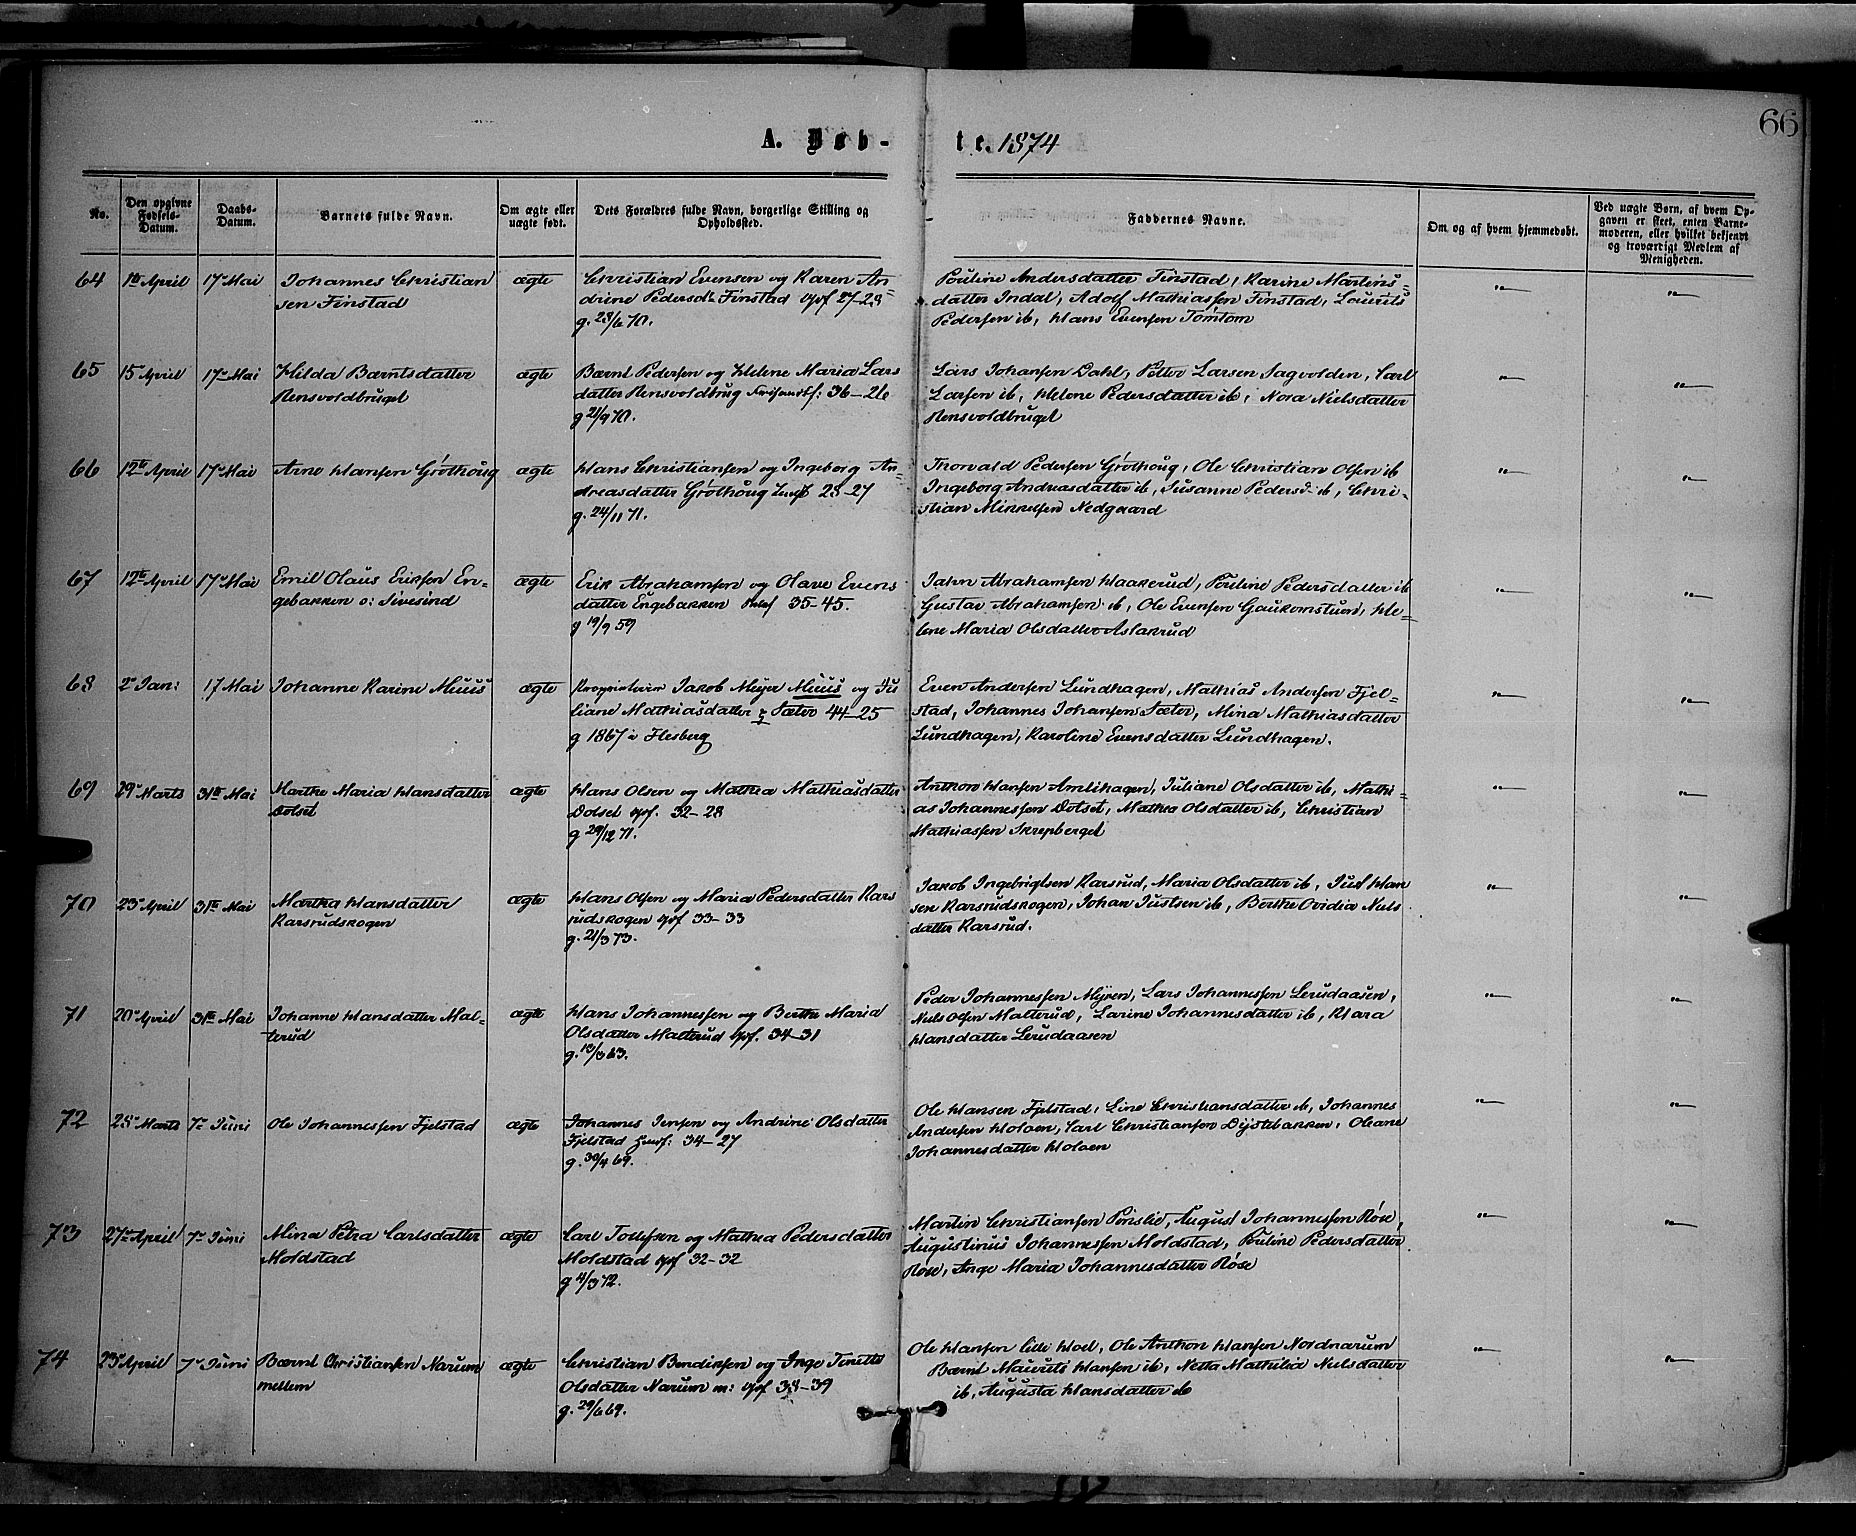 66
A. Døb-
te. 1874
No.
Den opgivne
Fødsels-
Datum.
Daabs-
Datum.
Barnets fulde Navn.
Om ægte eller
uægte født.
Dets Forældres fulde Navn, borgerlige Stilling og
Opholdssted.
Faddernes Navne.
Om og af hvem hjemmedøbt.
Ved uægte Børn, af hvem Op-
gaven er skeet, enten Barne-
moderen, eller hvilket bekjendt
og troværdigt Medlem af
Menigheden.
64 1te April 17de Mai Johannes Christian
sen Finstad
ægte
Christian Evensen og Karen An-
drine Pedersdr Finstad 27-28
g. 28/6 70.
Pouline Andersdatter Finstad, Karine Martins-
datter Indal, Adolf Mathiassen Finstad, Laurits
Pedersen ib, Hans Evensen Tømtom
"
"
65 15de April 17de Mai Hilda Bærntsdatter
Rensvoldbruget
ægte
Bærnt Pedersen og Helene Maria Lars
datter Rensvoldbrug 36-26
g 21/9 70.
Lars Johansen Dahl, Petter Larsen Sagvolden, Carl
Larsen ib, Helene Pedersdatter ib, Nora Nielsdatter
Rensvoldbruget
"
"
66 12te April 17de Mai Arne Hansen Grøthoug
ægte
Hans Christiansen og Ingeborg An-
dreasdatter Grøthoug 28-27
g. 24/11 71.
Thorvald Pedersen Grøthoug, Ole Christian Olsen ib
Ingeborg Andreasdatter ib, Susanne Pedersd ib, Chri-
stian Mikkelsen Nedgaard
"
"
67 12te April 17de Mai Emil Olaus Eriksen En-
gebakken o: Sivesind
ægte
Erik Abrahamsen og Olave Evens
datter Engebakken 35-45.
g 19/9 59
Jahn Abrahamsen Haakerud, Pouline Pedersdatter ib
Gustav Abrahamsen ib, Ole Evensen Gaukomstuen, He-
lene Maria Olsdatter Aslakrud
"
"
68 2de Jan: 17 Mai Johanne Karine Muus
ægte
Jakob Meyer Muus og Ju
liane Mathiasdatter Sæter 44-25
g 1867 i Flesberg
Even Andersen Lundhagen, Mathias Andersen Fjel-
stad, Johannes Johansen Sæter, Mina Mathiasdatter
Lundhagen, Karoline Evensdatter Lundhagen.
"
"
69 29de Marts 31te Mai Marthe Maria Hansdatter
Dolset
ægte
Hans Olsen og Mathea Mathiasdatter
Dolset 32-28
g 29/12 71.
Anthon Hansen Amlihagen, Juliane Olsdatter ib, Mathi-
as Johannessen Dolset, Mathea Olsdatter ib, Christian
Mathiassen Skrepberget
"
"
70 23de April 31te Mai Martha Hansdatter
Karsrudskogen
ægte
Hans Olsen og Maria Pedersdatter Kars
rudskogen 33-33
g. 21/3 73.
Jakob Ingebrigtsen Karsrud, Maria Olsdatter ib, Just Han
sen Karsrudskogen, Johan Justsen ib, Berthe Ovidia Niels
datter Karsrud.
"
"
71 20de April 31te Mai Johanne Hansdatter Mal-
terud
ægte
Hans Johannessen og Berthe Maria
Olsdatter Malterud 34-31
g. 13/3 63.
Peder Johannessen Myren, Lars Johannessen Lerudaasen,
Niels Olsen Malterud, Larine Johannesdatter ib, Klara
Hansdatter Lerudaasen
"
"
72 28de Marts 7de Juni Ole Johannessen Fjelstad
ægte
Johannes Jensen og Andrine Olsdatter
Fjelstad 34-27
g. 30/4 69.
Ole Hansen Fjelstad, Line Christiansdatter ib, Johannes
Andersen Holaen, Carl Christiansen Dystebakken, Oleane
Johannesdatter Holaen
"
"
73 27de April 7de Juni Mina Petra Carlsdatter
Moldstad
ægte
Carl Tollefsen og Mathea Pedersdatter
Moldstad 32-32
g 4/3 72.
Martin Christiansen Prislie, August Johannessen Røse,
Augustinus Johannessen Moldstad, Pouline Pedersdatter
Røse, Inge Maria Johannesdatter Røse
"
"
74 23de April 7de Juni Bærnt Christiansen Narum
mellem
ægte
Christian Bendiksen og Inge Tinette
Olsdatter Narum m: 38-39
g. 29/6 69.
Ole Hansen Lille Hoel, Ole Anthon Hansen Nordnarum
Bærnt Maurits Hansen ib, Netta Mathilia Nielsdatter
ib, Augusta Hansdatter ib
"
"